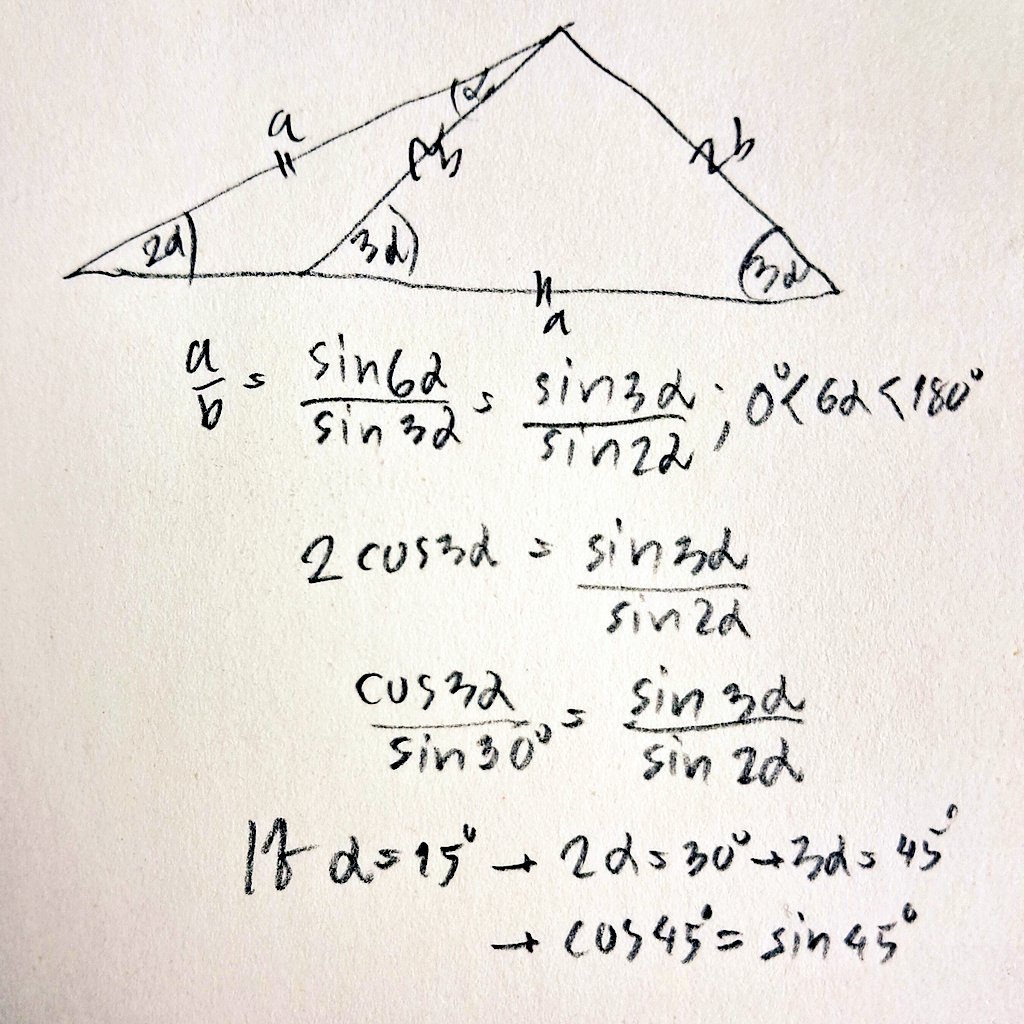 α
a
b
b
2α
3α
3α
a
a/b = sin6α/sin3α = sin3α/sin2α ; 0°<6α<180°
2cos3α = sin3α/sin2α
cos3α/sin30° = sin3α/sin2α
If α=15° → 2α=30° → 3α=45°
→ cos45° = sin45°